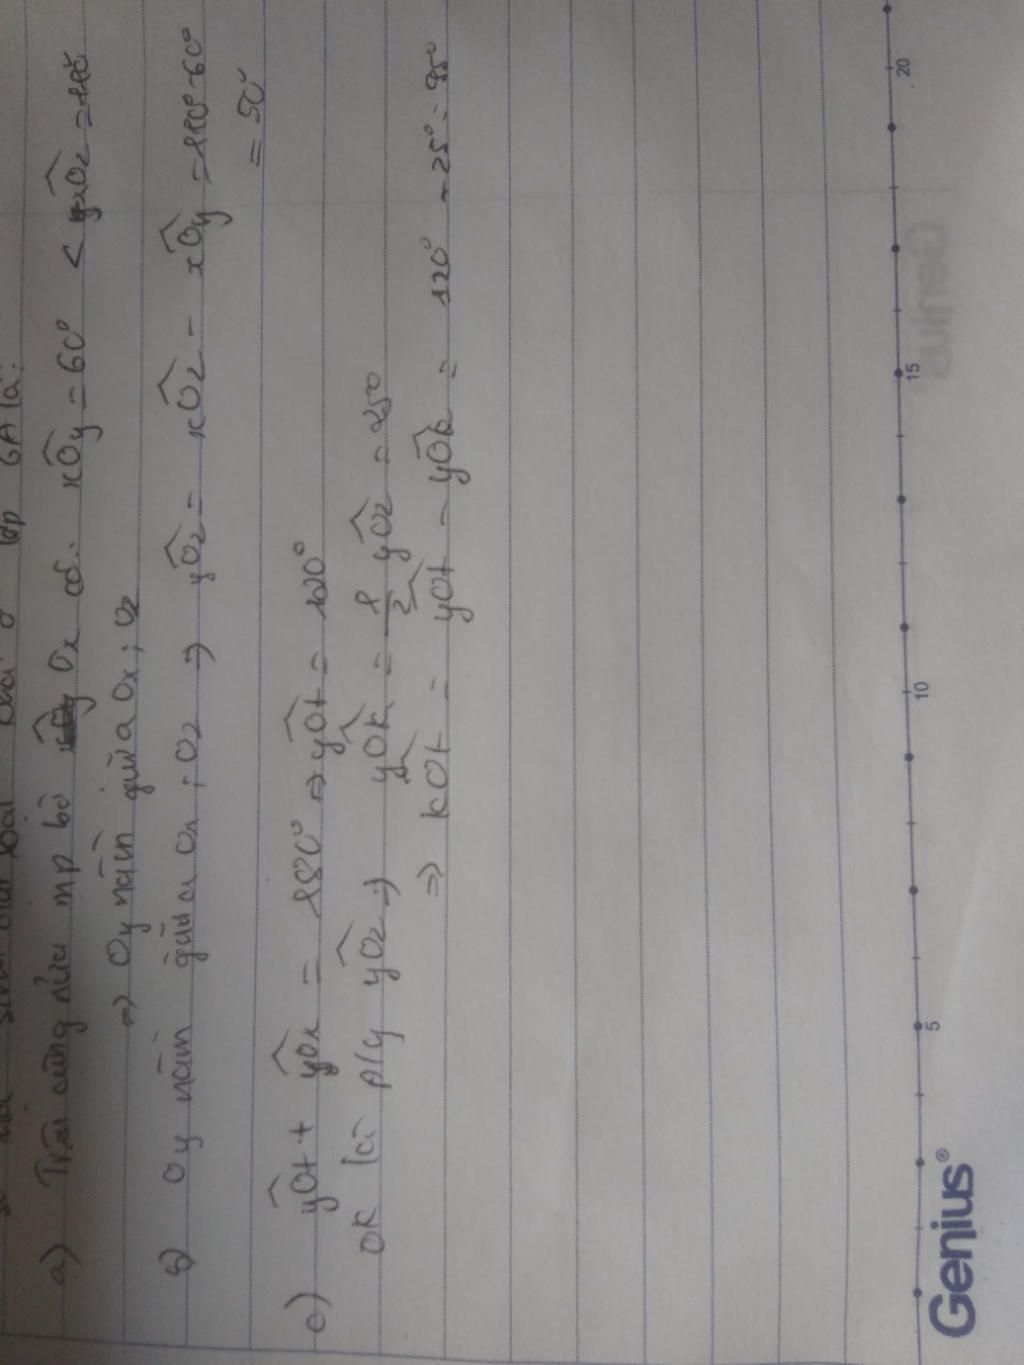 lớp 6A là:
a) Trên cùng nửa mp bờ Ox có: xÔy = 60° < xÔz = 110°
=> Oy nằm giữa Ox; Oz
b) Oy nằm giữa Ox; Oz => yÔz = xÔz - xÔy = 110° - 60°
= 50°
c) yÔt + yÔx = 180° => yÔt = 120°
OK là p/g yÔz => yÔk = 1/2 yÔz = 25°
=> kÔt = yÔt - yÔk = 120° - 25° = 95°
5 10 15 20
Genius®
Genius